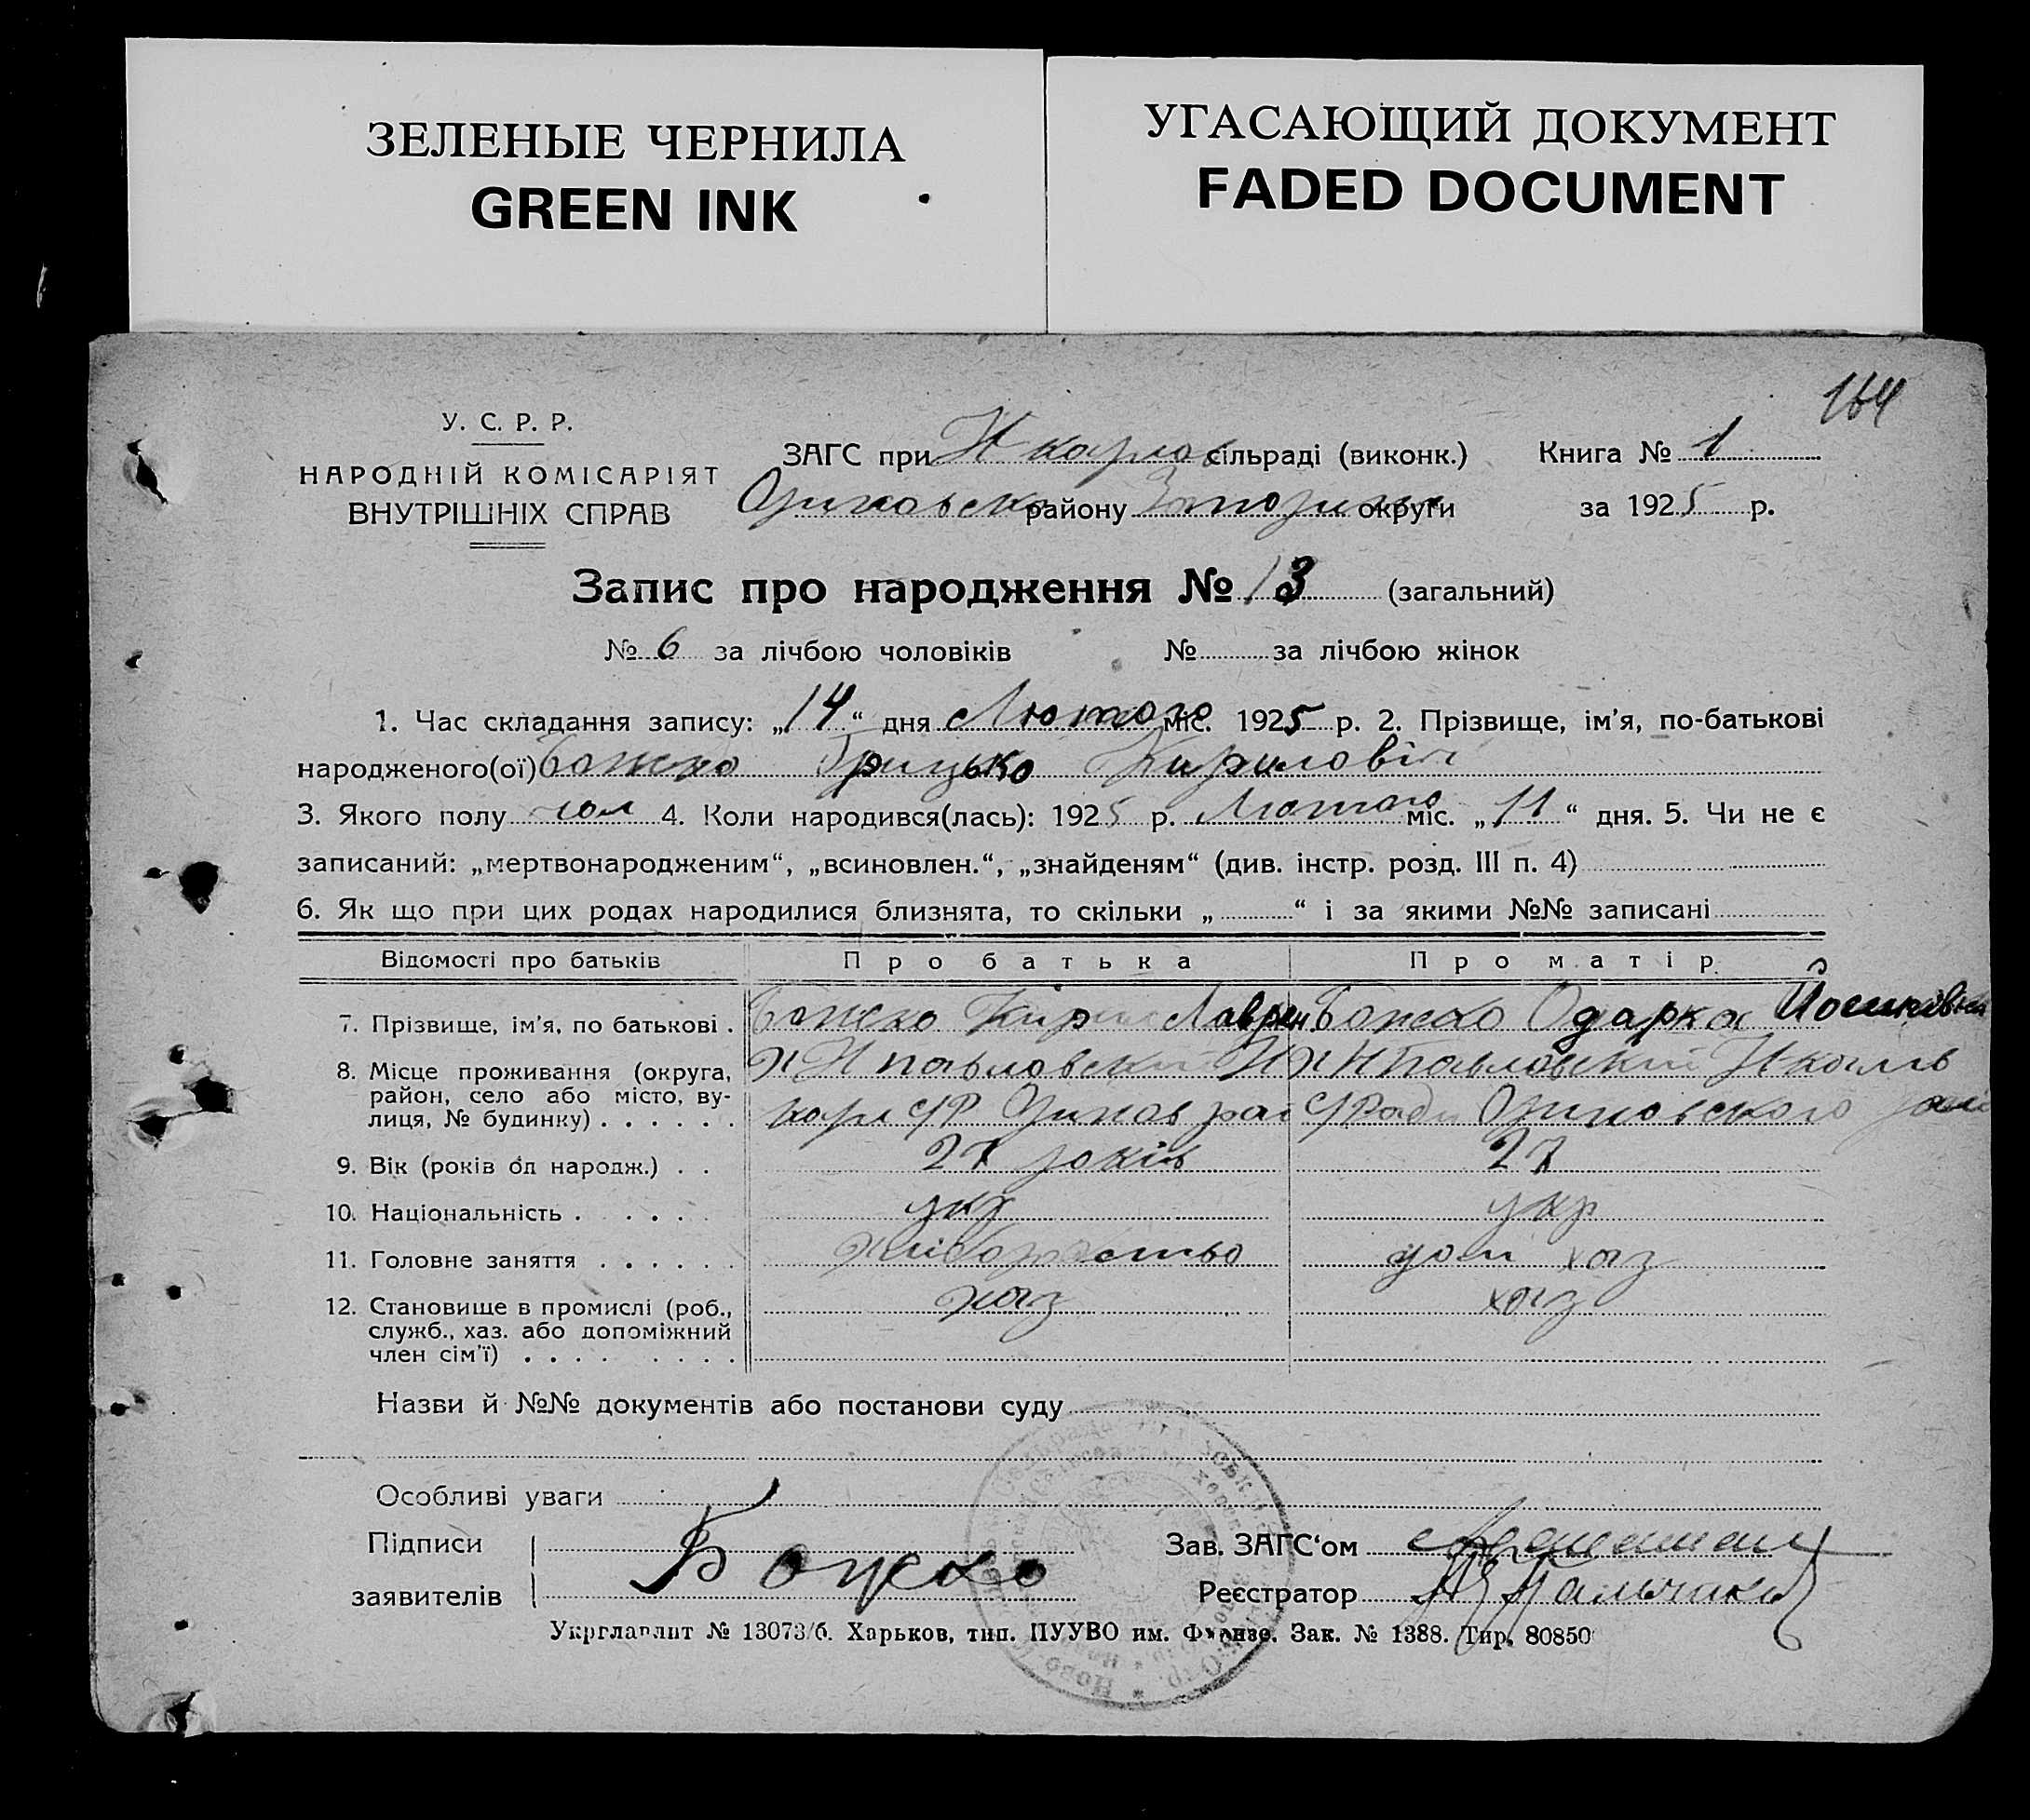 ЗЕЛЕНЫЕ ЧЕРНИЛА
GREEN INK
УГАСАЮЩИЙ ДОКУМЕНТ
FADED DOCUMENT
164
У. С. Р. Р.
НАРОДНІЙ КОМІСАРІЯТ
ВНУТРІШНІХ СПРАВ
ЗАГС при Н карлов сільраді (виконк.) Книга № 1
району округи за 1925 р.
Запис про народження № 13 (загальний)
№ 6 за лічбою чоловіків № за лічбою жінок
1. Час складання запису: „14“ дня Лютого міс. 1925 р. 2. Прізвище, ім’я, по-батькові
народженого(ої) Божко Грицько Кирилович
3. Якого полу чол 4. Коли народився(лась): 1925 р. Лютого міс. „11“ дня. 5. Чи не є
записаний: „мертвонародженим“, „всиновлен.“, „знайденям“ (див. інстр. розд. III п. 4)
6. Як що при цих родах народилися близнята, то скільки „ “ і за якими №№ записані
Відомості про батьків Про батька Про матір
7. Прізвище, ім’я, по батькові . Божко Кирил Лаврен Божко Одарка
8. Місце проживання (округа, х Н павловский Н х Н Павловский Н карлів
район, село або місто, ву- карл С/Р Оріхов рай С/Ради Оріховского рай
лиця, № будинку) . . . . . .
9. Вік (років од народж.) . . 27 років 27
10. Національність . . . . . укр укр
11. Головне заняття . . . . . . хліборобство дом хаз
12. Становище в промислі (роб., хаз хаз
служб., хаз. або допоміжний
член сім’ї) . . . . . . . .
Назви й №№ документів або постанови суду
Особливі уваги
Підписи Божко Зав. ЗАГС‘ом
заявителів Реєстратор
Укрглавлит № 13073/б. Харьков, тип. ПУУВО им. Фрунзе. Зак. № 1388. Тир. 80850